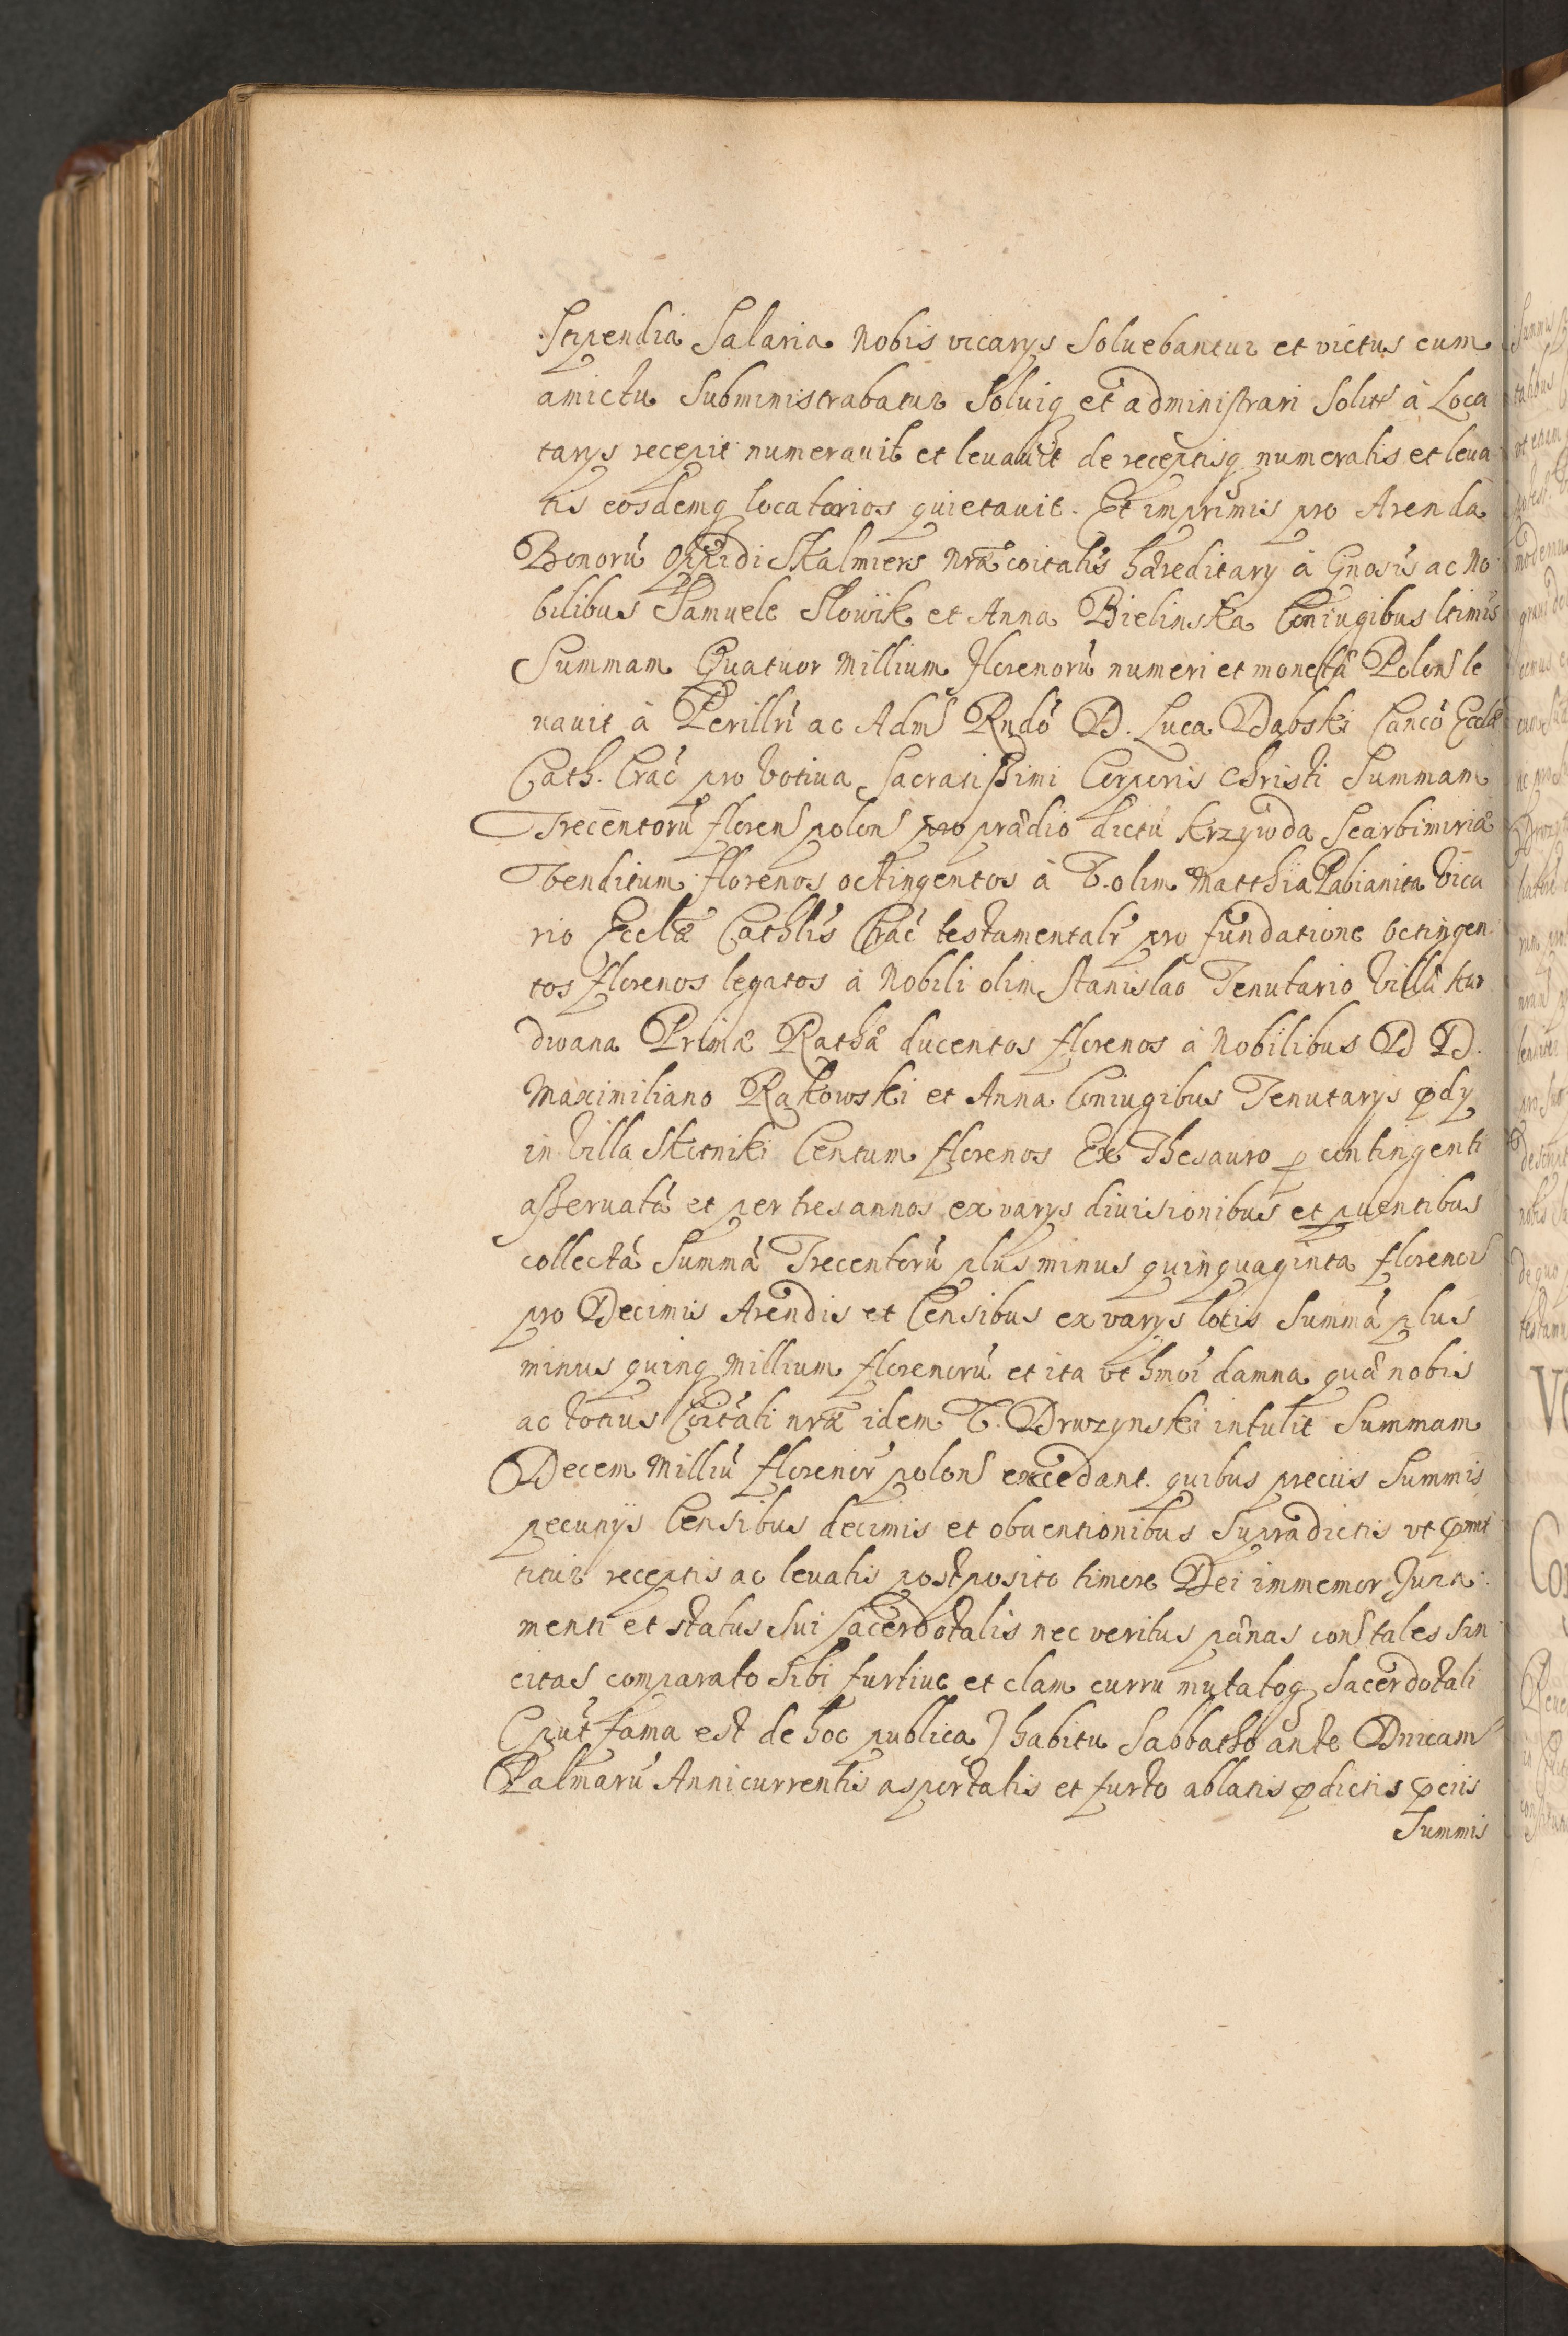 Stipendia Salaria Nobis vicarys Soluebantur et victus cum
amictu Subministrabatur Soluiq et administrari Solitℯ à Loca
tarys recepit numerauit et leuauit de receptisq numeratis et leua
tis eosdemq locatarios quietauit. Et imprimis pro Arenda
Bonorũ Oppidi Skalmierz nræ coitatis hæreditary à Gnosis ac No
bilibus Samuele Slowik et Anna Bielinska Coniugibus ltimis
Summam Quatuor Millium Florenorũ numeri et monetæ Polons le
uauit à Perillri ac Admſ Rndo D. Luca Dabski Canco Eccæ
Cath. Crac pro votiua Sacratissimi Corporis Christi Summam
Trecentorũ florenſ polonſ pro prædio dictũ Krzywda Scarbimiriæ
Venditum florenos octingentos à V. olim Matthia Pabianita Vica
rio Ecclæ Cathlis Crac testamentalr pro fundatione octingen
tos florenos legatos à Nobili olim Stanislao Tenutario Villæ Kur
dwana Primæ Rathæ ducentos florenos à Nobilibus D D.
Maximiliano Rakowski et Anna Coniugibus Tenutarys pdy
in Villa Skotniki Centum florenos Ex Thesauro p contingenti
asseruatâ et per tres annos ex varys diuisionibus et puentibus
collectâ Summâ Trecentorũ plus minus quinquaginta florenor
pro Decimis Arendis et Censibus ex varys locis Summâ plus
minus quinq Millium florenorũ et ita vt hmoi damna quæ nobis
ac totius Coitati nræ idem V. Druzynski intulit Summam
Decem Milliũ florenor polonſ excedant. quibus preciis Summis
pecunys Censibus decimis et obuentionibus Supradictis vt pmit
titur receptis ac leuatis postposito timore Dei immemor Jura
menti et status Sui Sacerdotalis nec veritus pænas conſ tales San
citas comparato Sibi furtiue et clam curru mutatoq Sacerdotali
(put fama est de hoc publica) habitu Sabbatho ante Dnicam
Palmarũ Anni currentis asportatis et furto ablatis pdictis pciis
Summis